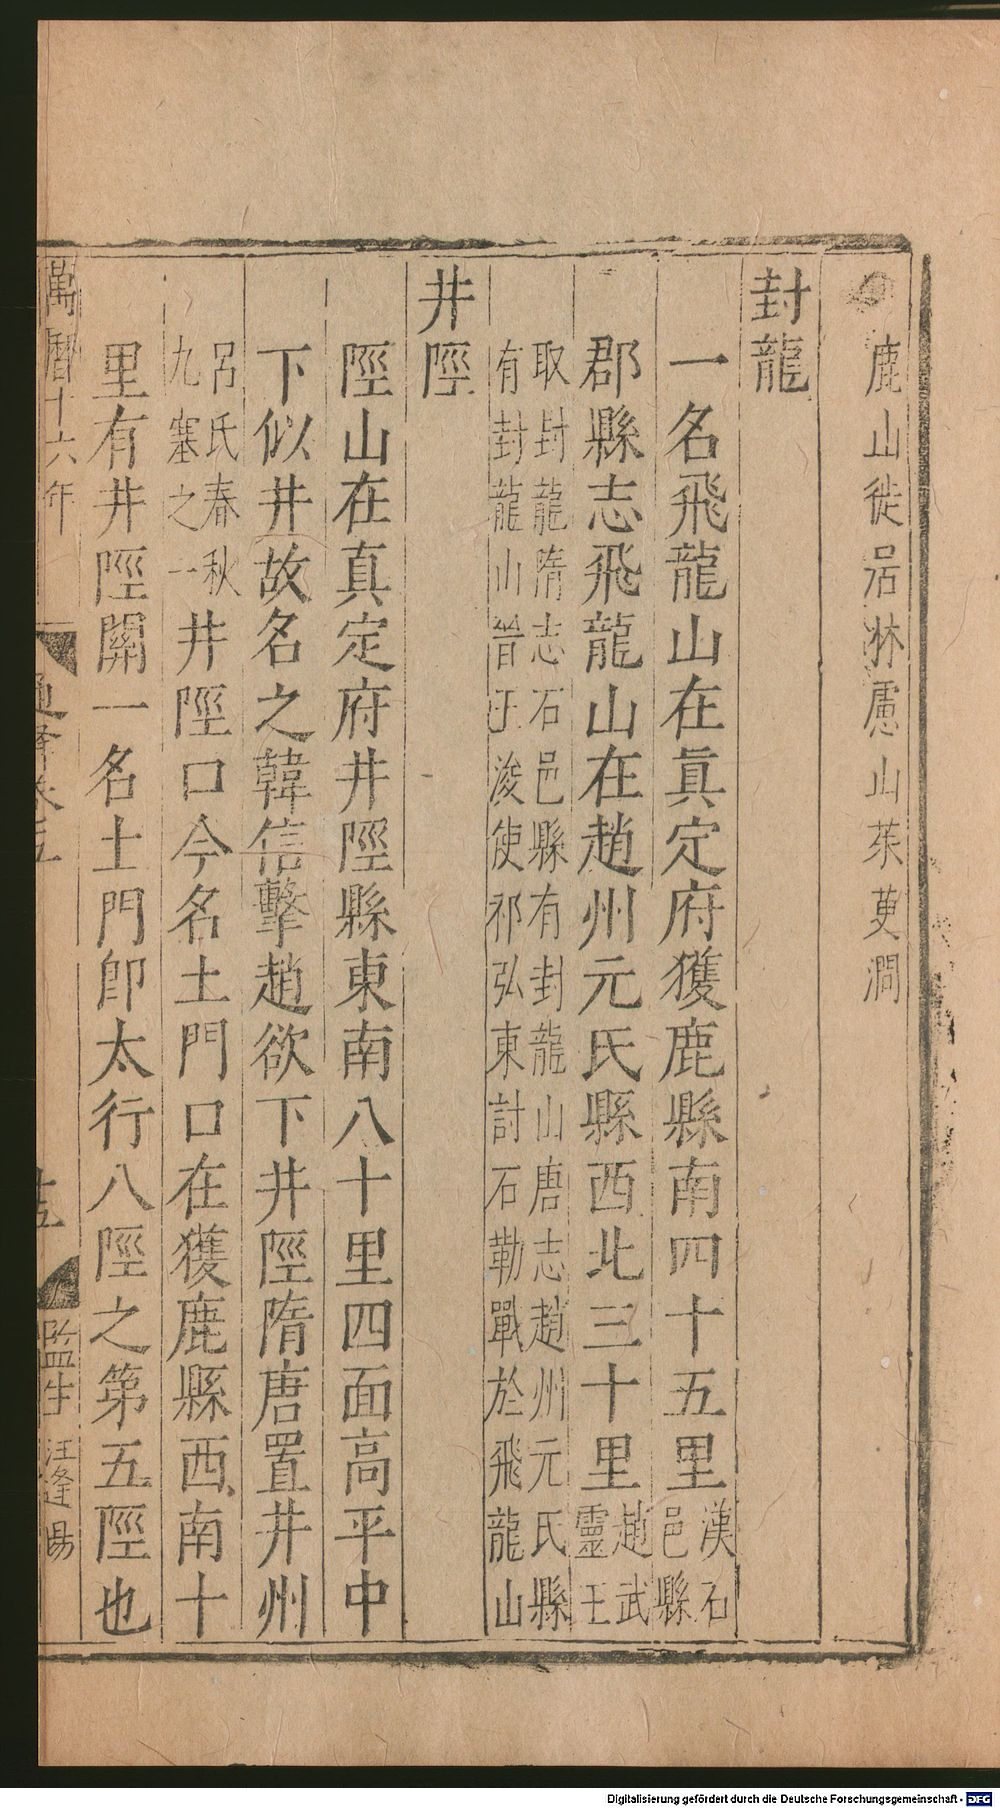 鹿山徙居林慮山茱萸澗
封龍
一名飛龍山在眞定府獲鹿縣南四十五里漢石邑縣
郡縣志飛龍山在趙州元氏縣西北三十里趙武靈王
取封龍隋志石邑縣有封龍山唐志趙州元氏縣
有封龍山晉王浚使祁弘東討石勒戰於飛龍山
井陘
陘山在真定府井陘縣東南八十里四面高平中
下似井故名之韓信擊趙欲下井陘隋唐置井州
呂氏春秋九塞之一井陘口今名土門口在獲鹿縣西南十
里有井陘關一名土門卽太行八陘之第五陘也
萬曆十六年
通釋卷五
十五
監生汪逢暘
Digitalisierung gefördert durch die Deutsche Forschungsgemeinschaft - DFG